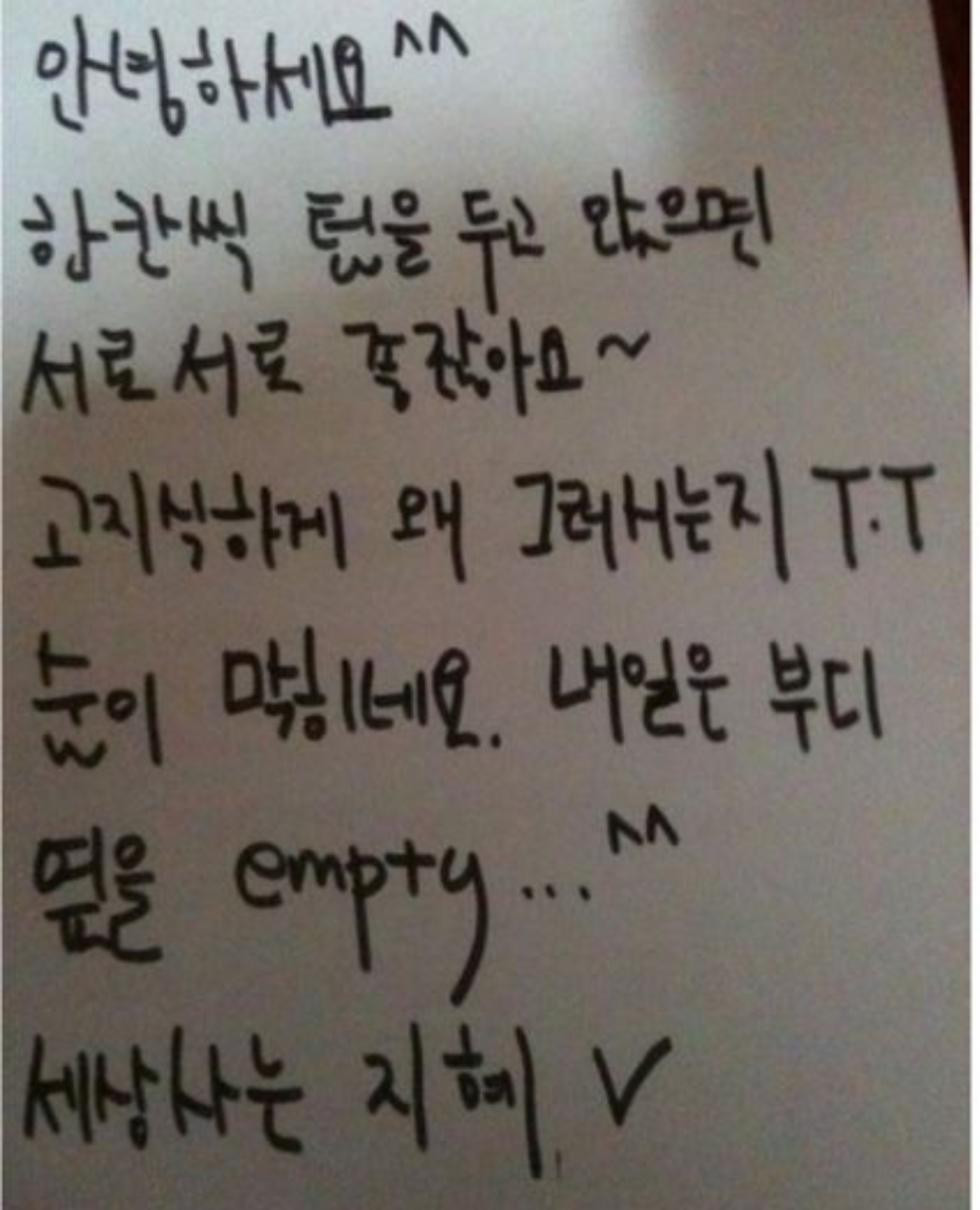 안녕하세요^^
한칸씩 텀을 두고 앉으면
서로서로 좋잖아요~
고지식하게 왜 그러시는지 T.T
숨이 막히네요. 내일은 부디
옆을 empty...^^
세상사는 지혜 V